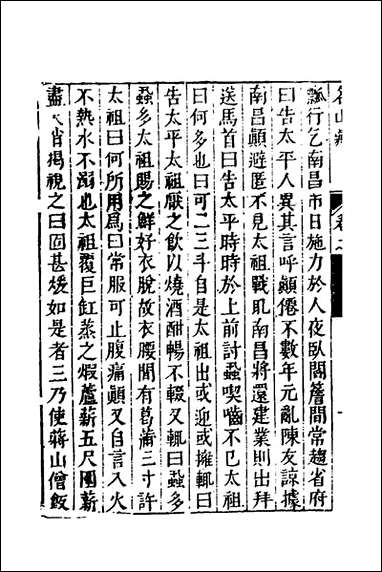 名山藏
卷之
瓢行乞南昌市日施力於人夜臥閣簷間常趨省府
曰告太平人異其言呼顛僊不數年元亂陳友諒據
南昌顛避匿不見太祖戡亂南昌將還建業則出拜
送馬首曰告太平時時於上前討蝨喫嚙不已太祖
曰何多也曰可二三斗自是太祖出或迎或擁輒曰
告太平太祖厭之飲以燒酒酣暢不輟又輒曰蝨多
蝨多太祖賜之鮮好衣脫故衣腰間有菖蒲三寸許
太祖曰何所用爲曰常服可止腹痛顛又自言入火
不熱水不溺也太祖覆巨缸蒸之煆蘆薪五尺圍薪
盡火消揭視之曰固甚煖如是者三乃使蔣山僧飯